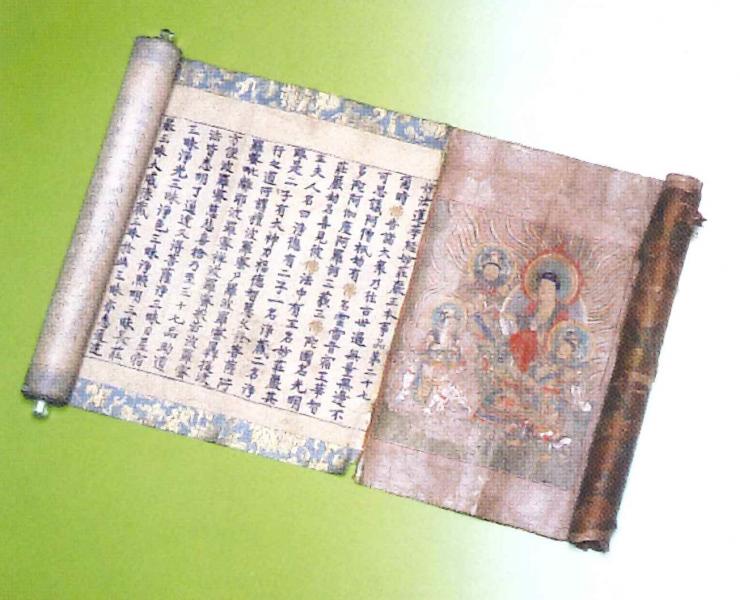 妙法蓮華經妙莊嚴王本事品第二十七
爾時佛告諸大衆乃往古世過無量無邊不
可思議阿僧祇劫有佛名雲雷音宿王華智
多陀阿伽度阿羅訶三藐三佛陀國名光明
莊嚴劫名喜見彼佛法中有王名妙莊嚴其
王夫人名曰淨德有二子一名淨藏二名淨
眼是二子有大神力福德智慧久修菩薩所
行之道所謂檀波羅蜜尸羅波羅蜜羼提波
羅蜜毗梨耶波羅蜜禪波羅蜜般若波羅蜜
方便波羅蜜慈悲喜捨乃至三十七品助道
法皆悉明了通達又得菩薩淨三昧日星宿
三昧淨光三昧淨色三昧淨照明三昧長莊
嚴三昧大威德藏三昧於此三昧亦悉通達